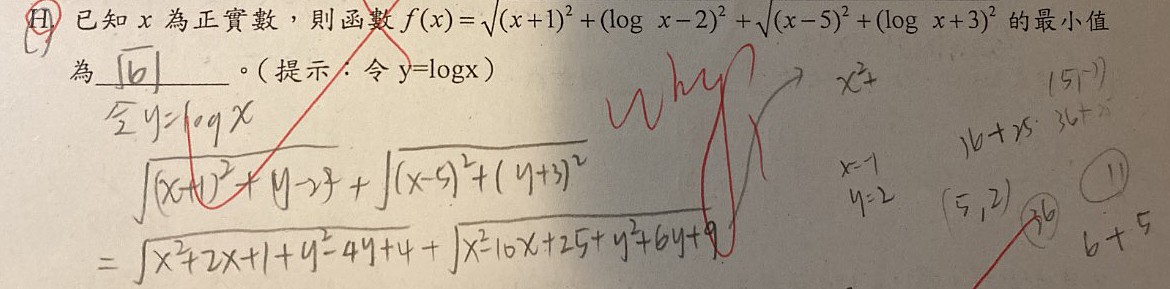 已知 x 為正實數，則函數 f(x)=√(x+1)²+(log x−2)²+√(x−5)²+(log x+3)² 的最小值
為 √61 。(提示：令 y=logx)
令 y=log x
why
√(x+1)²+(y-2)² + √(x-5)²+(y+3)²
= √x²+2x+1+y²-4y+4 + √x²-10x+25+y²+6y+9
x²+
(5,-3)
36+25
36+25
x=-1
y=2
(5,2)
36
11
6+5